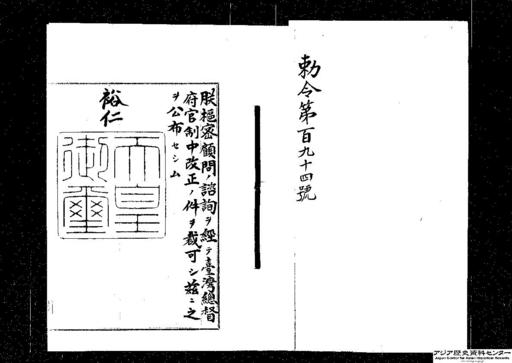 勅令第百九十四號
朕樞密顧問ノ諮詢ヲ經テ臺灣總督
府官制中改正ノ件ヲ裁可シ茲ニ之
ヲ公布セシム
裕仁
天皇
御璽
アジア歴史資料センター
Japan Center for Asian Historical Records